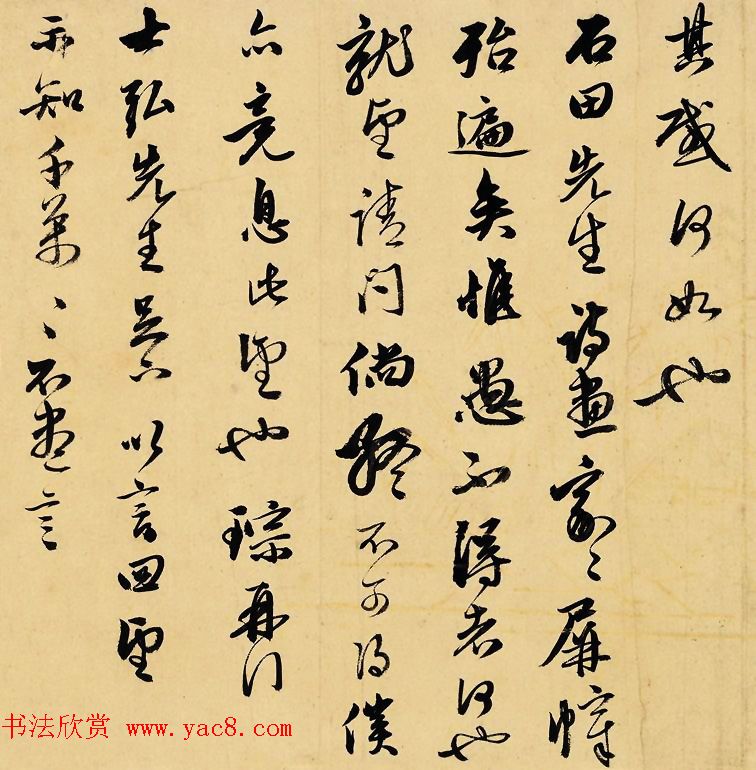 其盛何如也
石田先生詩畫家〻屏幛
殆遍矣惟愚不得者何也
就望請問倘終不可得僕
亦竟息此望也琮再行
士弘先生足下以言回望
示知千萬〻不盡言
书法欣赏 www.yac8.com